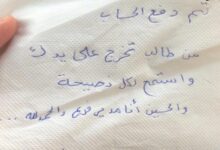 تم دفع الحساب
من طالب تخرج على يدك
واستمع لكل نصيحة
والحين أنا مدير فرع والحمدلله ...